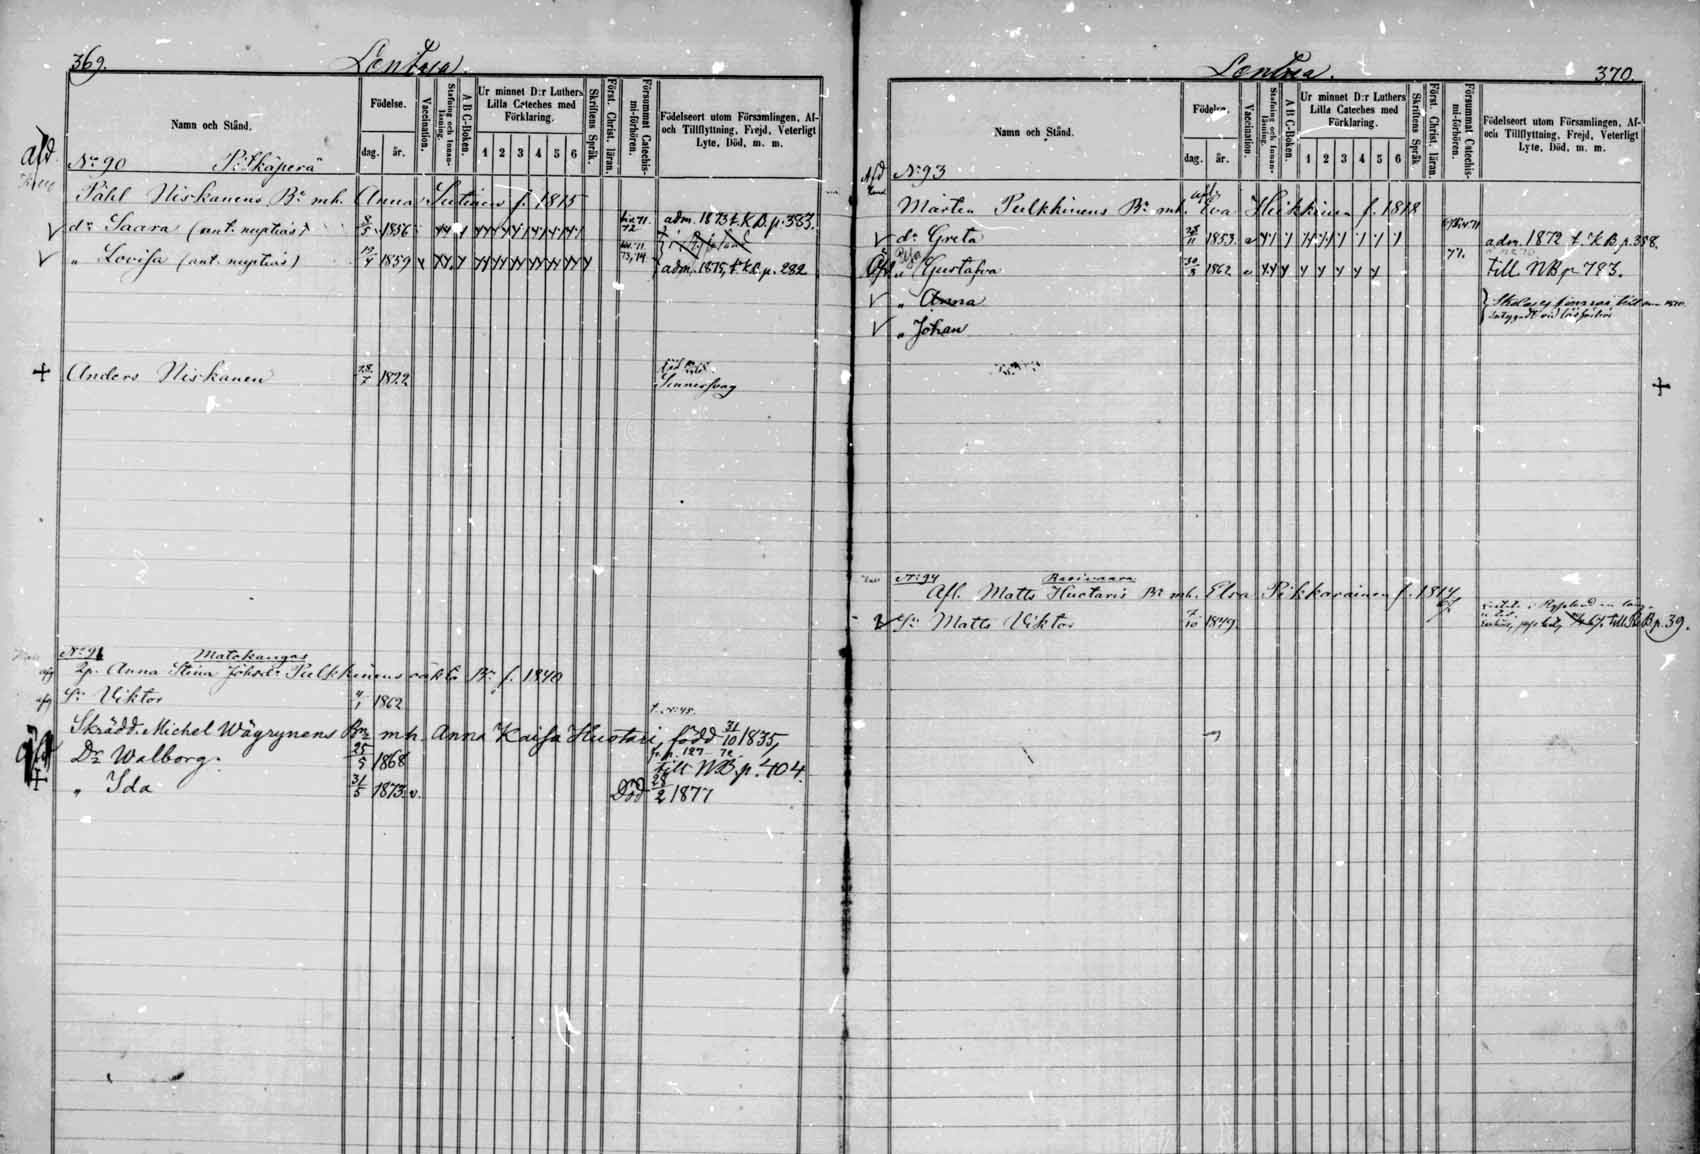 369.
Lentua.
Namn och Stånd.
Födelse.
dag. år.
Vaccination.
Stafning och Innanläsning.
A B C-Boken.
Ur minnet D:r Luthers Lilla Cateches med Förklaring.
1 2 3 4 5 6
Skriftens Språk.
Först. Christ. läran.
Försummat Catechismi-förhören.
Födelseort utom Församlingen, Af- och Tillflyttning, Frejd, Veterligt Lyte, Död, m. m.
afd.
No 90
Påhl Niskanens Bn mh. Anna f. 1815
dr Saara (ant. nuptias) 1856 adm. 1873 t. K.B. p. 383.
" Lovisa (ant. nuptias) 1859 adm. 1875, t. K.B. p. 282
Anders Niskanen 28/7 1822
No 91 Matokangas
Anna Stina Johsdr Pulkkinens oäkta Bn f. 1840
Sn Viktor 1862
Skrädd. Michel Wägrynens Brn mh. Anna Kaisa Huotari, född 31/10 1835,
Dr Walborg. 25/5 1868 till N.B. p. 404.
" Ida 31/5 1873 v. Död 28/2 1877
370.
Lentua.
Namn och Stånd.
Födelse.
dag. år.
Vaccination.
Stafning och Innanläsning.
A B C-Boken.
Ur minnet D:r Luthers Lilla Cateches med Förklaring.
1 2 3 4 5 6
Skriftens Språk
Först. Christ. läran.
Försummat Catechismi-förhören.
Födelseort utom Församlingen, Af- och Tillflyttning, Frejd, Veterligt Lyte, Död, m. m.
Afd
No 93
Mårten Pulkkinens Bn mh. Eva Heikkinen f. 1818
dr Greta 1853 adm. 1872 t. K B p. 358.
" Gustafva 1862 71. till NB p 783.
" Anna
" Johan
No 94
Afl. Matts Huotaris Bn mh. Elsa Pikkarainen f. 1814
Sn Matts Viktor 7/10 1849 p. 39.